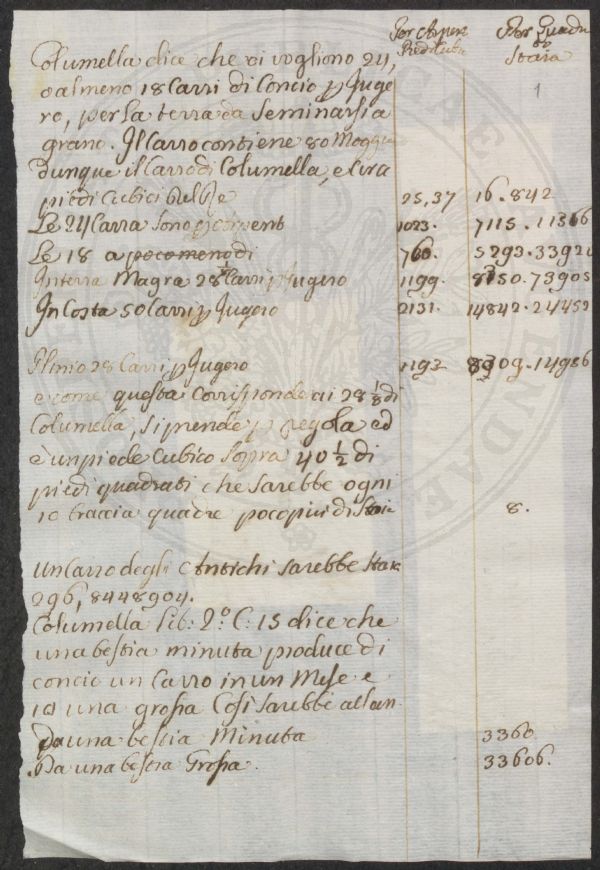 Per Ogni Per Quadr
Reddituta
Columella dice che vi vogliono 24,
o almeno 18 Carri di Concio p Juge Staia
ro, per la terra da Seminarsi a 1
grano. Il Carro contiene 80 Moggi
dunque il Carro di Columella, e Cira
piedi Cubici 25,37 16.842
Le 24 Carra sono p 1023. 7115.11366
Le 18 a poco meno di 760. 5293.3392
In terra Magra 28 Carri p Jugero 1199. 8350.73905
In Costa 50 Carri p Jugero 2131. 14842.24452
Plinio 28 Carri p Jugero 1192 8309.14986
e come questa corrisponde ai 28 1/8 di
Columella, si prende p regola ed
è un piede Cubico sopra 40 1/2 di
piedi quadrati che sarebbe ogni
10 braccia quadre poco piu di Staia 8.
Un Carro degli Antichi sarebbe Staia
296,8448904.
Columella Lib: 2.º C: 15 dice che
una bestia minuta produce di
concio un Carro in un Mese e
10 una grossa Cosi sarebbe all'an
Da una bestia Minuta 3360.
Da una bestia Grossa. 33606.